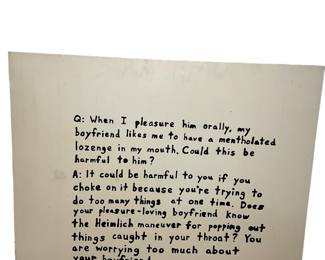 Q: When I pleasure him orally, my
boyfriend likes me to have a mentholated
lozenge in my mouth. Could this be
harmful to him?
A: It could be harmful to you if you
choke on it because you're trying to
do too many things at one time. Does
your pleasure-loving boyfriend know
the Heimlich maneuver for popping out
things caught in your throat? You
are worrying too much about
your boyfriend